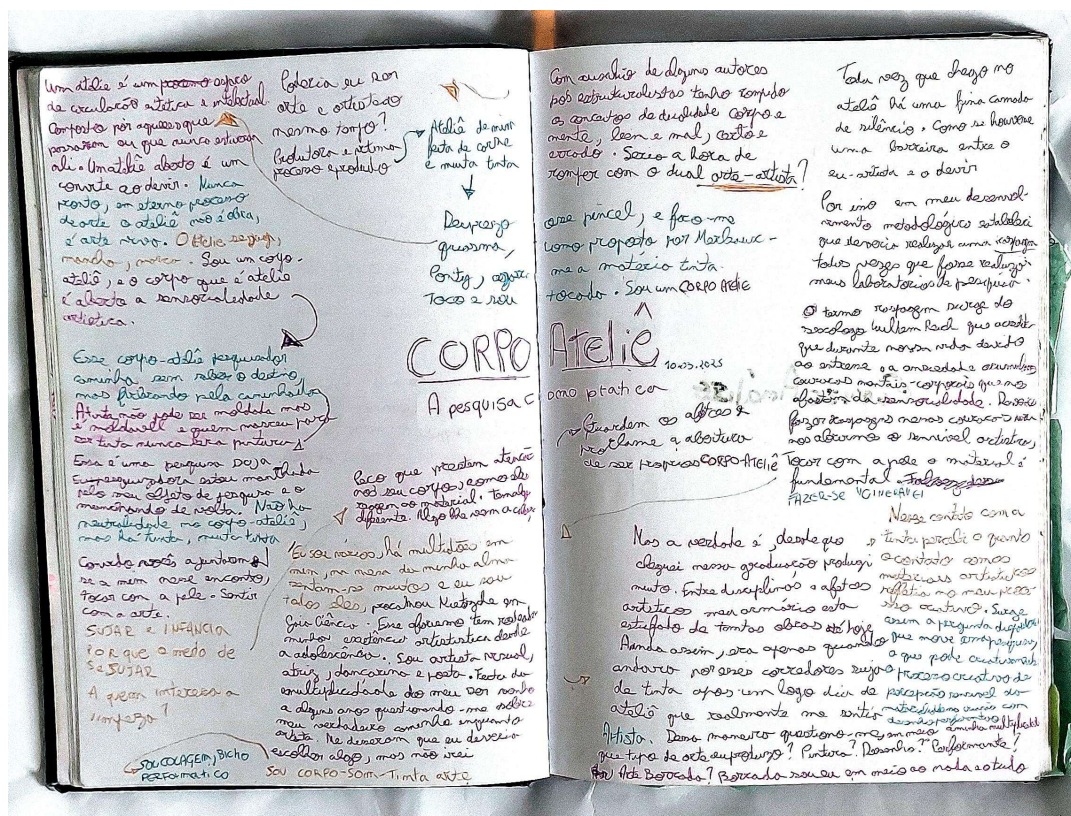 Um ateliê é um processo espaço
de circulação artística e intelectual
composto por aqueles que
passaram ou que nunca estiveram
ali. Um ateliê aberto é um
convite ao devir. Nunca
pronto, em eterno processo
de arte o ateliê não é obra,
é arte viva. O Atelie se suja,
mancha, marca. Sou um corpo-
ateliê, e o corpo que é ateliê
é aberto a sensorialedade
artistica.
Esse corpo-ateliê pesquisador
caminha sem saber o destino
mas firmando pela caminhada
A tinta não pode ser moldada mas
é moldável e quem nasceu para
ser tinta nunca será pintura
Essa é uma pesquisa SUJA
Eu pesquisadora estou manchada
pelo meu objeto de pesquisa e o
manchando de volta. Não há
neutralidade no corpo-ateliê,
mas há tinta, muita tinta
Convido vocês a juntarem
se a mim nesse encontro,
tocar com a pele. Sentir
com a arte.
SUJAR e INFÂNCIA
POR que o medo de
Se SUJAR
A quem interessa a
limpeza?
SOU COLAGEM, BICHO
PERFORMATICO
Poderia eu ser
arte e artista ao
mesmo tempo?
Produtora e
processo e produto
Ateliê de mim
feita de carne
e muita tinta
Desprezo
Ponty,
Toco e sou
CORPO ATELIÊ
10.05.2025
A pesquisa como pratica
Peço que prestem atenção
nos seu corpos, como eles
reagem ao material.
diferente. Algo lhe vem a cabeça
"Eu sou vários, há multidões em
mim, na mesa de minha alma
sentam-se muitos e eu sou
todos eles, proclamou Nietzsche em
Gaia Ciência. Esse aforismo tem rodeado
minha existência artististica desde
a adolescência. Sou artista visual,
atriz, dançarina e poeta. Feita da
multiplicidade do meu ser venho
a alguns anos questionando-me sobre
meu verdadeiro caminho enquanto
artista. Me disseram que eu deveria
escolher algo, mas não irei
SOU CORPO-SOM-Tinta arte
Com auxilio de alguns autores
pós estruturalistas tenho rompido
os conceitos de dualidade corpo e
mente, bem e mal, certo e
errado. Seria a hora de
romper com o dual arte-artista?
esse pincel, e faço-me
como proposto por Merleau-
me a matéria tinta.
tocada. Sou um CORPO ATELIE
Guardem os afetos e
proclame a abertura
de ser proprios CORPO-ATELIÊ
Mas a verdade é, desde que
cheguei nessa graduação produzi
muito. Entre disciplinas e afetos
artísticos meu armário esta
estufado de tantas obras até hoje
Ainda assim, era apenas quando
andava por esses corredores suja
de tinta apos um logo dia de
ateliê que realmente me sentia
Artista. Dessa maneira questiono-me, em meio a minha multiplicidade
que tipo de arte eu produzo? Pintura? Desenho? Performance?
Arte Borrada? Borrada sou eu em meio ao nada e tudo
Toda vez que chego no
ateliê há uma fina camada
de silêncio. Como se houvesse
uma barreira entre o
eu-artista e o devir
Por isso em meu desenvol-
vimento metodológico estabeleci
que deveria realizar uma raspagem
todas vezes que fosse realizar
meus laboratórios de pesquisa.
O termo raspagem surge do
Reich que
que durante nossa vida devido
ao estresse e a ansiedade acumulamos
couraças mentais-corporais que nos
afastam da sensorialidade. Devemos
fazer raspagens nessas couraças
nos abrirmos o sensível artistico,
Tocar com a pele o material é
fundamental.
FAZER-SE
Nesse contato com a
tinta percebi o quanto
o contato com os
materiais artisticos
refletia no meu proces-
so criativo. Surge
assim a pergunta
que move essa pesquisa,
o que pode
processo criativo de
percepção sensivel da